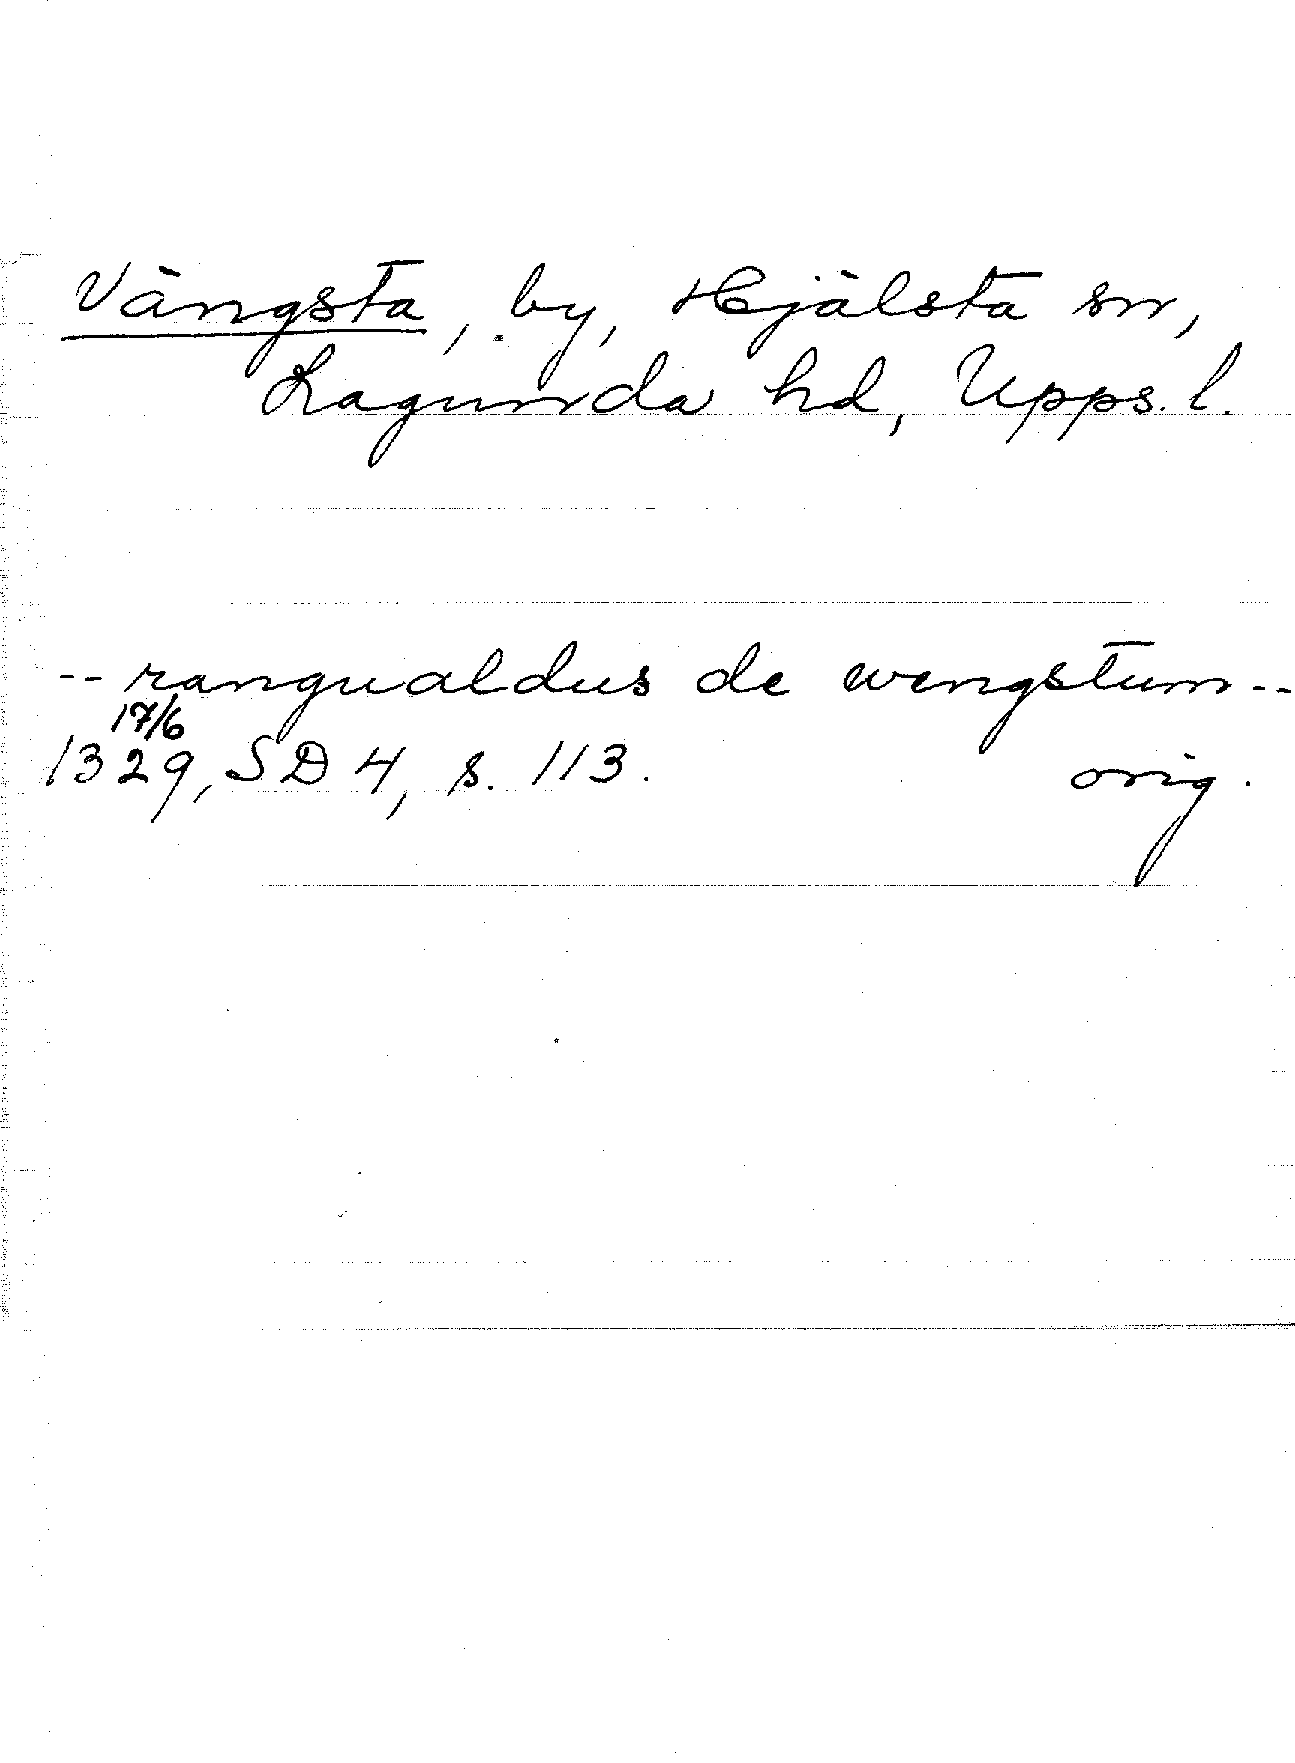 Vängsta, by, Hjälsta sn,
Lagunda hd, Upps. l.
-- rangualdus de wengstum --
17/6
1329, SD 4, s. 113. orig.